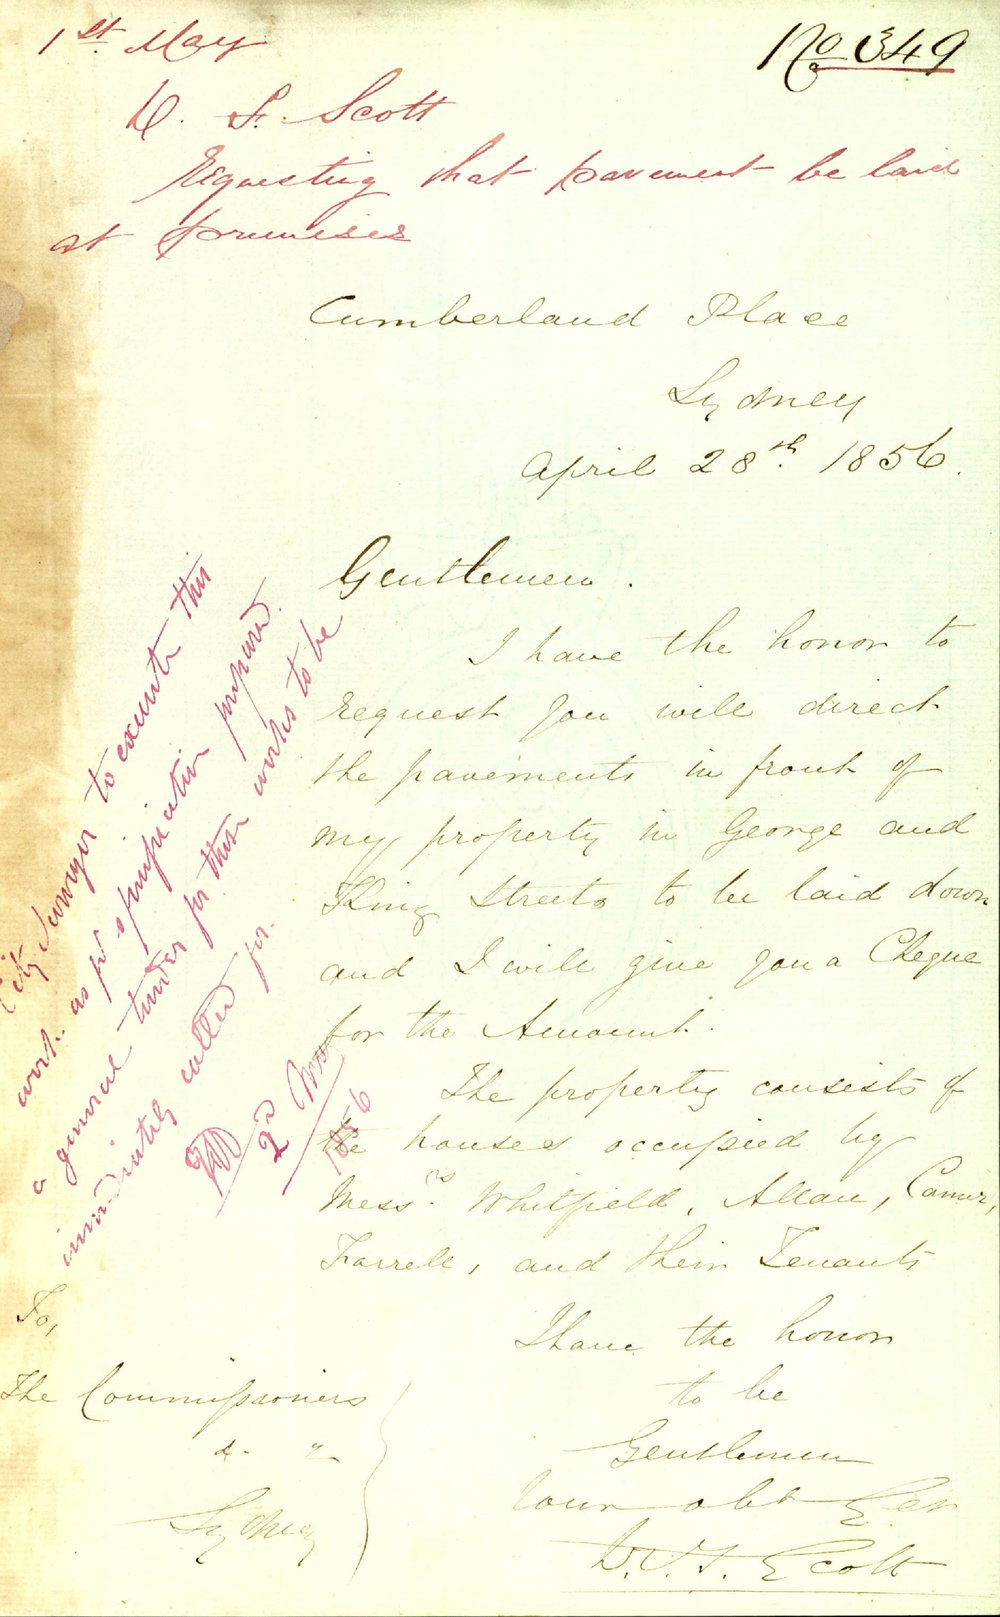 1st May
No 349
D. S. Scott
requesting that pavement be laid
at premises
Cumberland Place
Sydney
April 28th. 1856.
Gentlemen.
I have the honor to
request you will direct
the pavements in front of
my property in George and
King Streets to be laid down
and I will give you a Cheque
for the Amount.
The property consists of
the houses occupied by
Messrs. Whitfield, Allan,
Farrell, and their Tenants
I have the honor
to be
Gentlemen
Your obt Ser
Scott
To,
The Commissioners
&
Sydney
City Surveyor to execute this
work as per specification prepared.
a general tender for these works to be
immediately called for.
2nd May
1856